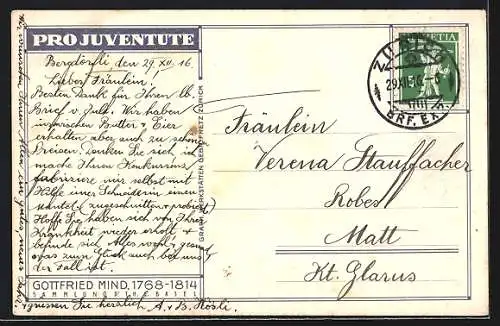 PRO JUVENTUTE
Bergdörfli, den 29. XII. 16.
Liebes Fräulein!
Besten Dank für Ihren lb.
Brief v. Julh. Wir haben
Butter & Eier
erhalten aber auch zu schönen
Preisen. Denken Sie sich, ich
mache Ihnen Konkurrenz,
fabriziere mir selbst mit
Hilfe einer Schneiderin einen
Mantel (zugeschnitten & probiert)
Hoffe Sie haben sich von Ihrer
Krankheit wieder erholt &
befinde sich Alles wohl & gesund
was zum Glück auch bei uns
der Fall ist.
GOTTFRIED MIND, 1768-1814
SAMMLUNG BASEL
grüssen Sie herzlich A. & B. Hösli.
GRAPH. WERKSTÄTTEN GEBR. FRETZ, ZÜRICH
HELVETIA
ZÜRICH
29.XII.16
BRF. EX.
Fräulein
Verena Stauffacher
Robes
Matt
Kt. Glarus